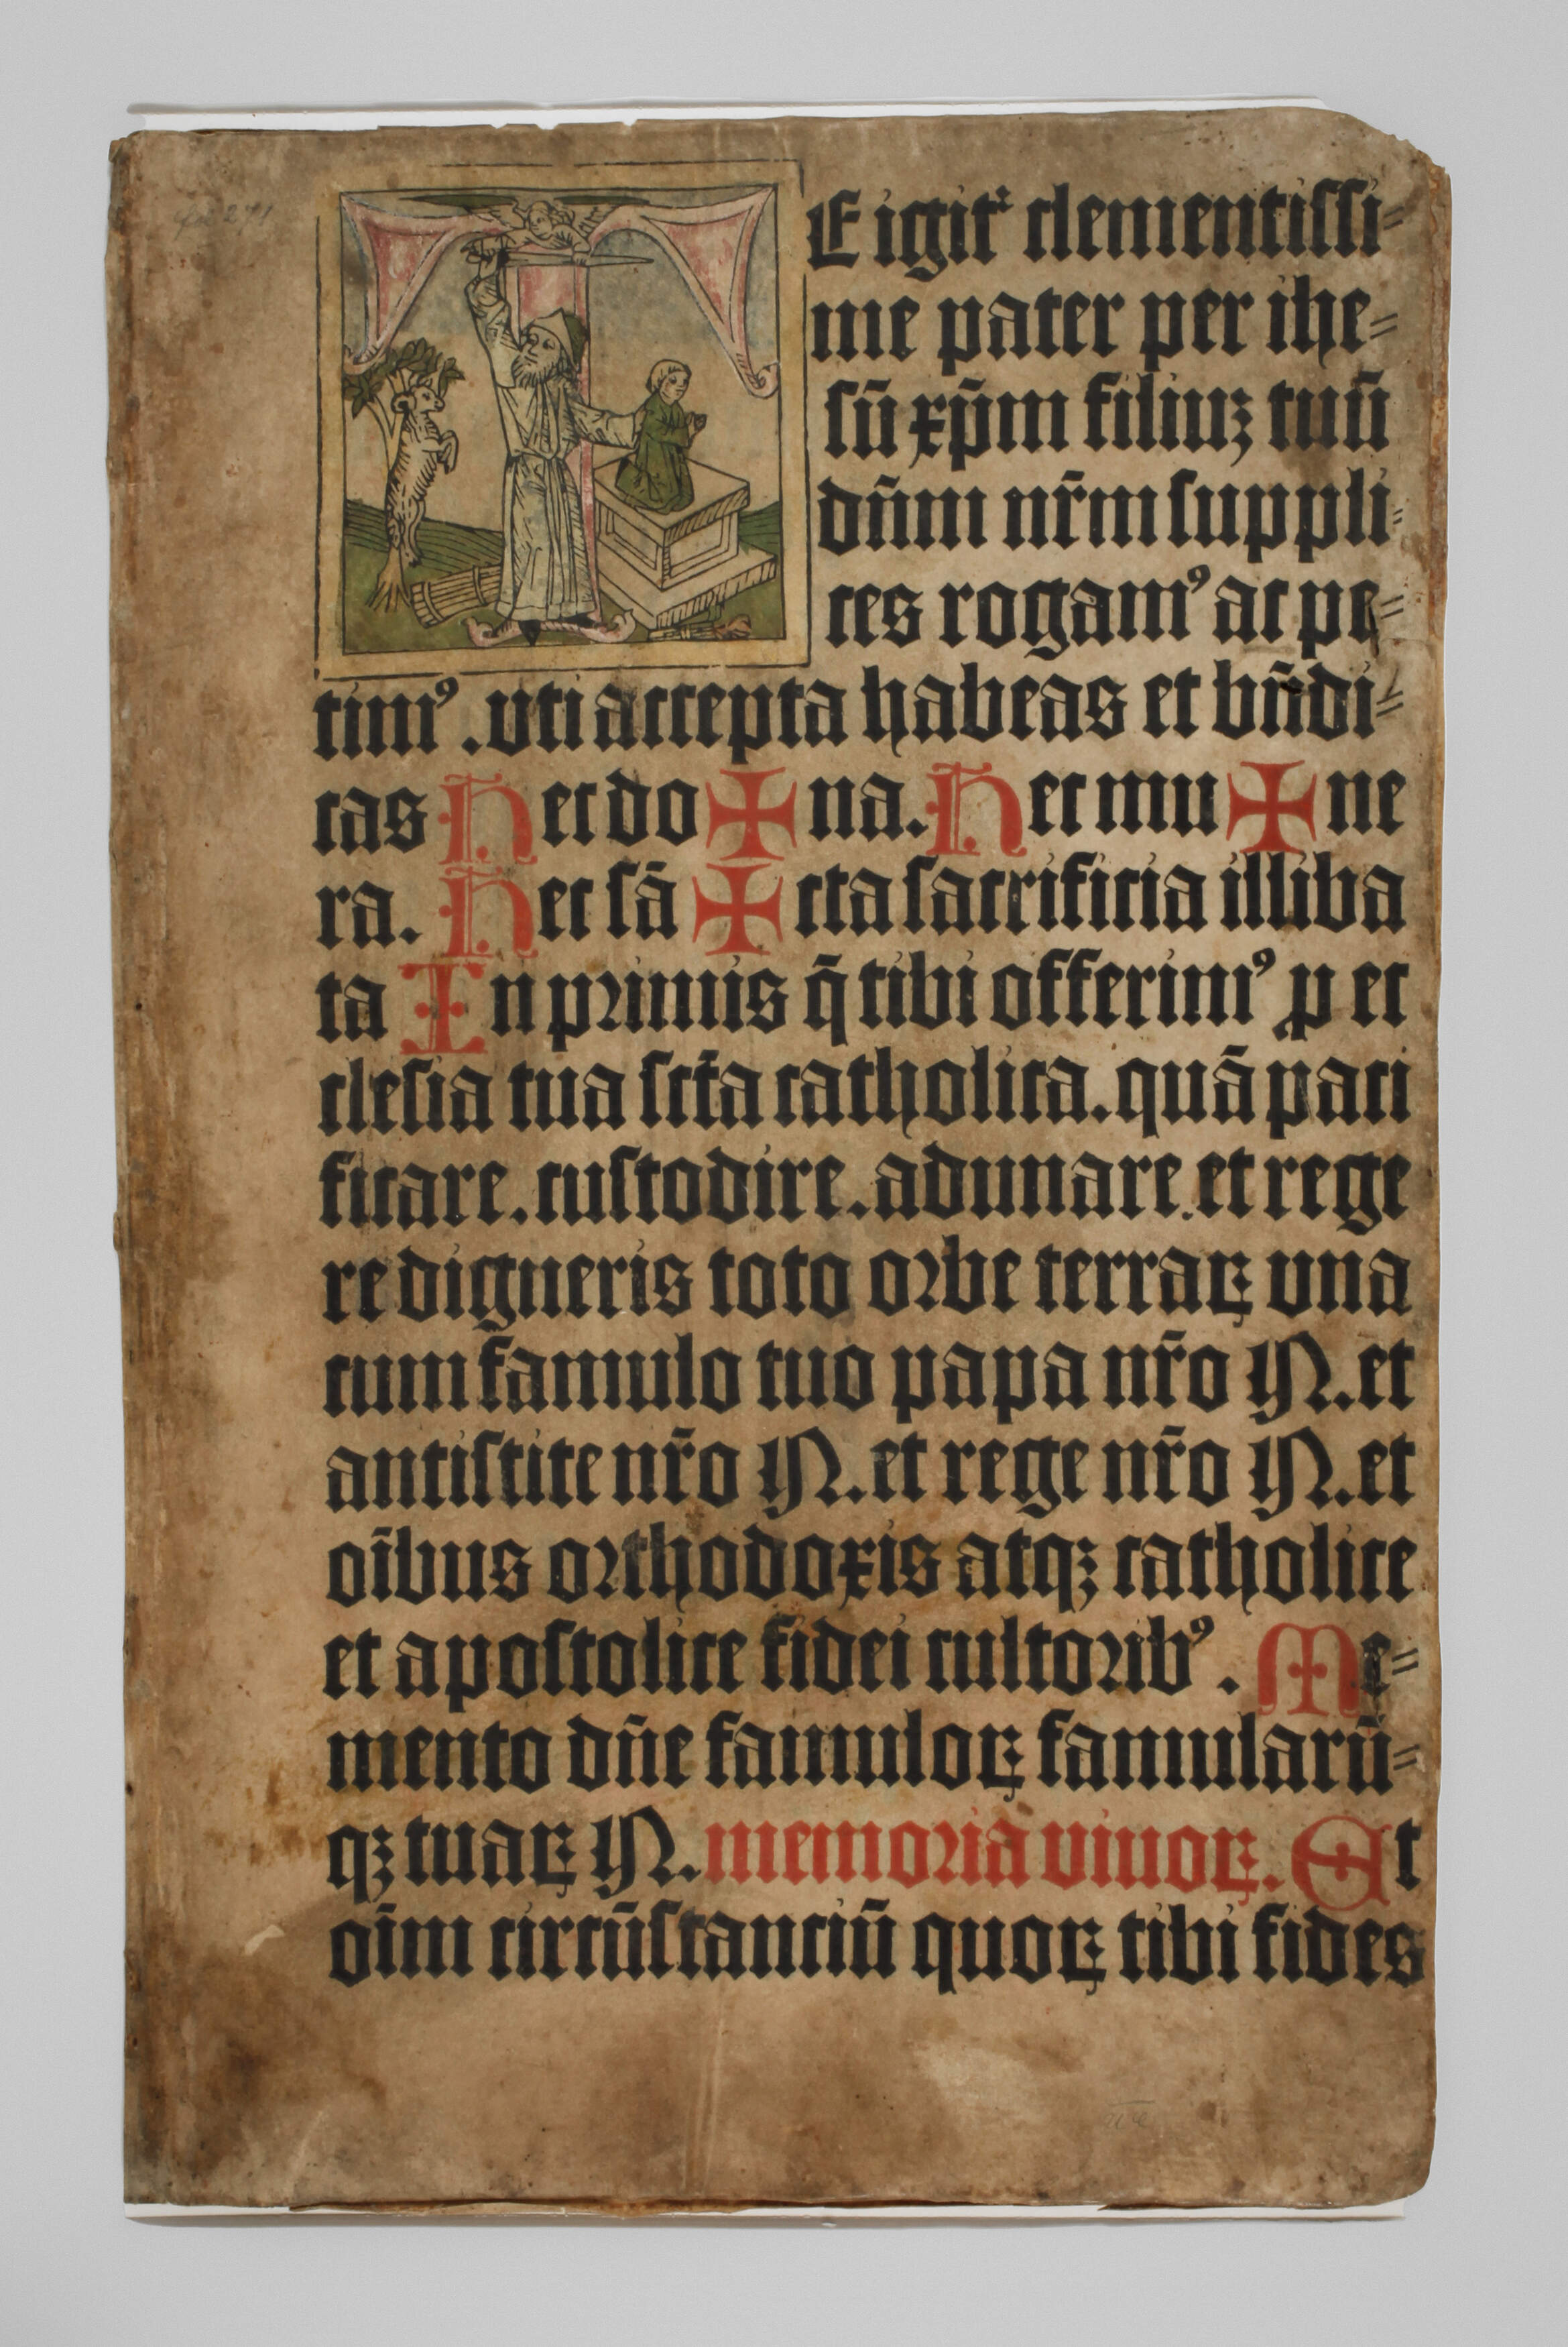 E igitᷣ clementissi⸗
me pater per ihe⸗
sū xp̄m filiuꝫ tuū
dn̄m nr̄m suppli⸗
ces rogamꝰ ac pe⸗
timꝰ .vti accepta habeas et bn̄di⸗
cas Hec do✠na. Hec mu✠ne
ra. Hec sā✠cta sacrificia illiba
ta In pꝛimis q̄ tibi offerimꝰ ꝓ ec
clesia tua sct̄a catholica. quā paci
ficare. custodire. adunare. et rege
re digneris toto oꝛbe terraꝝ vna
cum famulo tuo papa nr̄o N. et
antistite nr̄o N. et rege nr̄o N. et
oībus oꝛthodoxis atqꝫ catholice
et apostolice fidei cultoꝛibꝰ. Me⸗
mento dn̄e famuloꝝ famularū⸗
qꝫ tuaꝝ N. memoꝛia viuoꝝ. Et
oīm circūstanciū quoꝝ tibi fides